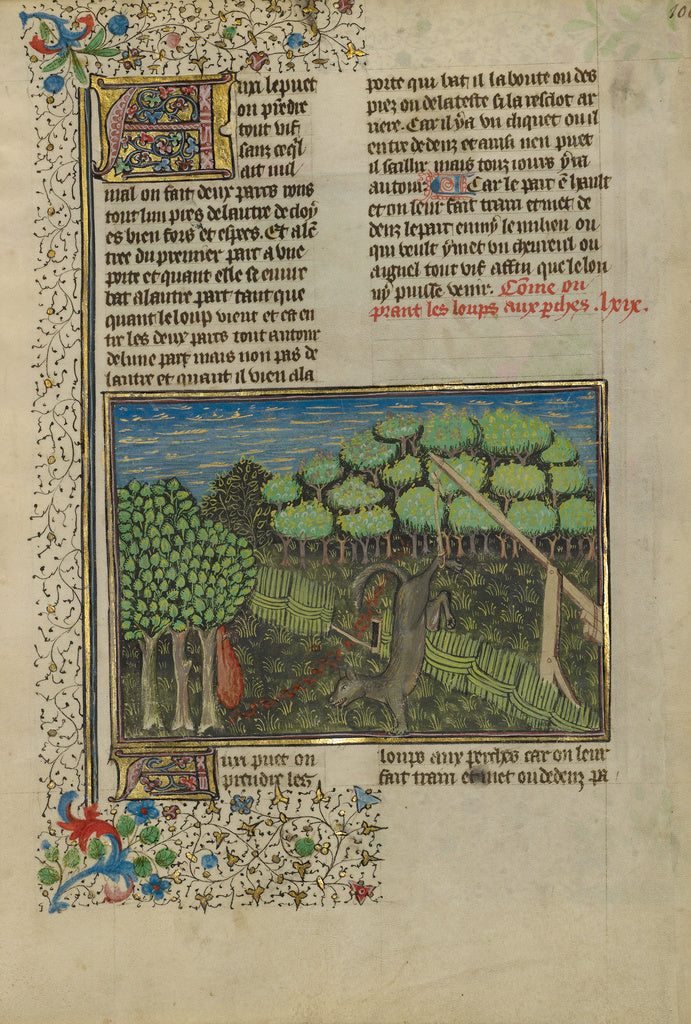 Aussi le puet
on prẽdre
tout vif
sanz ce q̃l
ait nul
mal on fait deux parcs rons
tout lun pres de lautre de cloy
es bien fors et espes. Et a lẽ
tree du premier parc a vne
porte et quant elle se euure
bat a lautre part tant que
quant le loup vient et est en
tre les deux parcs tout autour
de lune part mais non pas de
lautre et quant il vien a la
porte qui bat il la boute ou des
piez ou de la teste si la resclot ar
riere. Car il y a vn cliquet ou il
entre dedenz et ainsi nen puet
il saillir mais touz iours yra
autour. Car le parc ẽ hault
et on leur fait train et met de
denz le parc enmy le milieu ou
qui veult y met vn cheureul ou
aignel tout vif affin que le lou
y puisse venir. Cõme on
prant les loups aux p̱ches .lxix.
Aussi puet on
prendre les
loups aux perches car on leur
fait train et met on dedenz pa